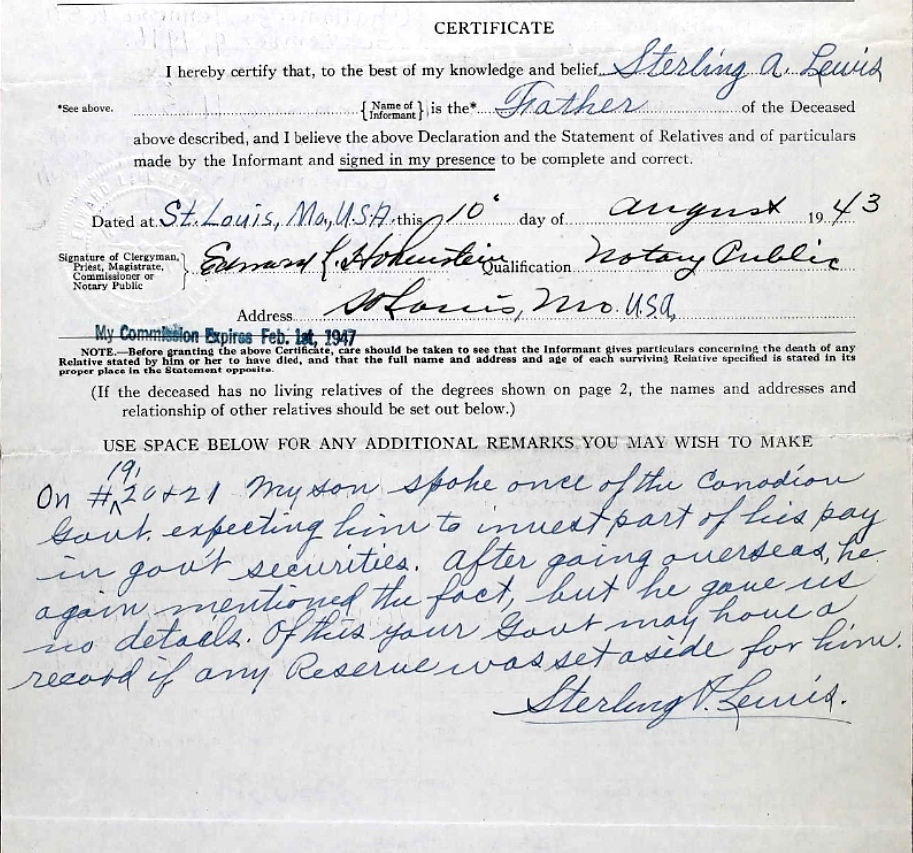 CERTIFICATE
I hereby certify that, to the best of my knowledge and belief Sterling A. Lewis
*See above. {Name of Informant} is the* Father of the Deceased
above described, and I believe the above Declaration and the Statement of Relatives and of particulars
made by the Informant and signed in my presence to be complete and correct.
Dated at St. Louis, Mo., U.S.A. this 10 day of August 1943
Signature of Clergyman, Priest, Magistrate, Commissioner or Notary Public } Edward Qualification Notary Public
Address St Louis, Mo. U.S.A.
My Commission Expires Feb. 1st, 1947
NOTE.—Before granting the above Certificate, care should be taken to see that the Informant gives particulars concerning the death of any
Relative stated by him or her to have died, and that the full name and address and age of each surviving Relative specified is stated in its
proper place in the Statement opposite.
(If the deceased has no living relatives of the degrees shown on page 2, the names and addresses and
relationship of other relatives should be set out below.)
USE SPACE BELOW FOR ANY ADDITIONAL REMARKS YOU MAY WISH TO MAKE
On # 19, 20 & 21 My son spoke once of the Canadian
Govt. expecting him to invest part of his pay
in gov't securities. After going overseas, he
again mentioned the fact, but he gave us
no details. Of this your Govt may have a
record if any Reserve was set aside for him.
Sterling A. Lewis.